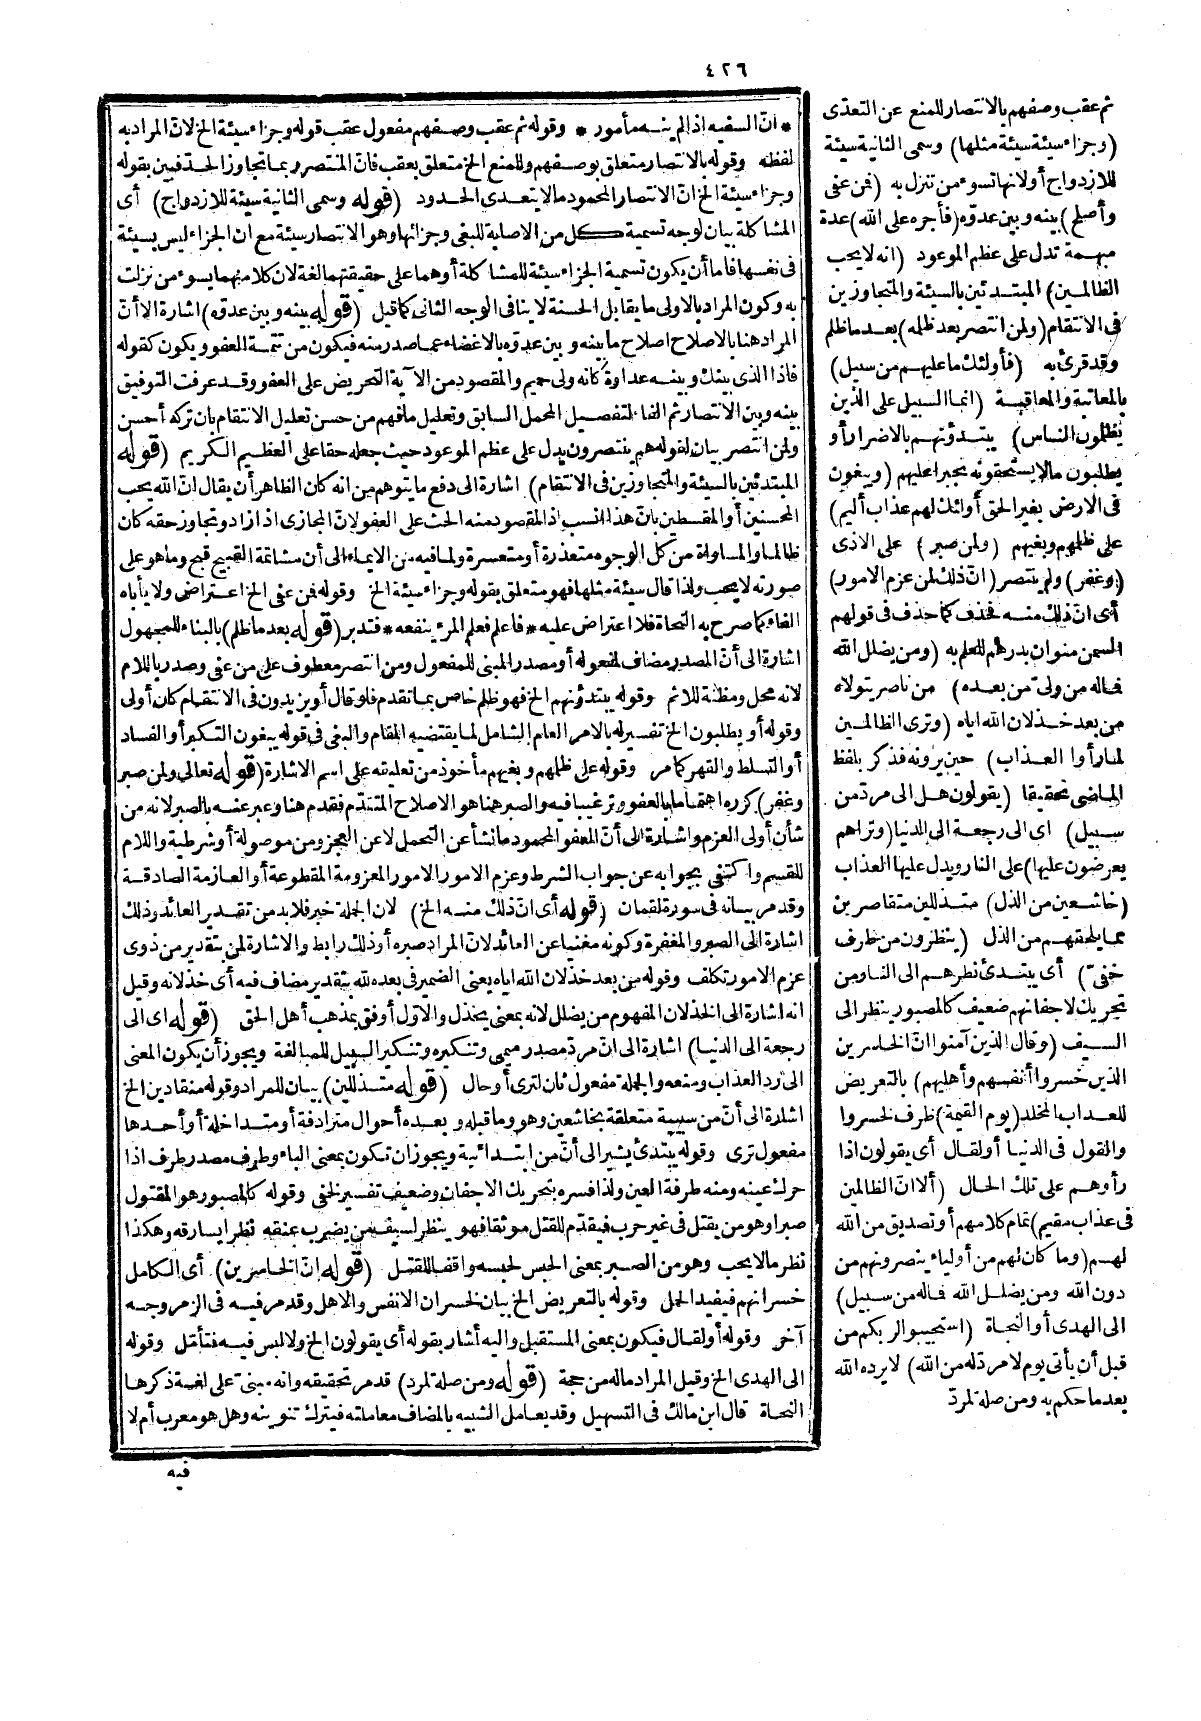 ٤٢٦
ثم عقب وصفهم بالانتصار للمنع عن التعدّى
(وجزاء سيئة سيئة مثلها) وسمى الثانية سيئة
للازدواج أولانها تسوء من تنزل به (فمن عفى
وأصلح) بينه وبين عدوّه (فأجره على الله) عدة
مبهمة تدل على عظم الموعود (انه لا يحب
الظالمين) المبتدئين بالسيئة والمتجاوزين
فى الانتقام (ولمن انتصر بعد ظلمه) بعد ما ظلم
وقد قرئ به (فأولئك ما عليهم من سبيل)
بالمعاتبة والمعاقبة (انما السبيل على الذين
يظلمون الناس) يبتدؤنهم بالاضرار أو
يطلبون ما لا يستحقونه تجبرا عليهم (ويبغون
فى الارض بغير الحق أولئك لهم عذاب أليم)
على ظلمهم وبغيهم (ولمن صبر) على الاذى
(وغفر) ولم ينتصر (انّ ذلك لمن عزم الامور)
أى انّ ذلك منه فحذف كما حذف فى قولهم
السمن منوان بدرهم للعلم به (ومن يضلل الله
فماله من ولىّ من بعده) من ناصر يتولاه
من بعد خذلان الله اياه (وترى الظالمين
لما رأوا العذاب) حين يرونه فذكر بلفظ
الماضى تحقيقا (يقولون هل الى مردّ من
سبيل) اى الى رجعة الى الدنيا (وتراهم
يعرضون عليها) على النار ويدل عليها العذاب
(خاشعين من الذل) متذللين متقاصرين
مما يلحقهم من الذل (ينظرون من طرف
خفىّ) أى يبتدئ نظرهم الى النار من
تحريك لاجفانهم ضعيف كالمصبور ينظر الى
السيف (وقال الذين آمنوا انّ الخاسرين
الذين خسروا أنفسهم وأهليهم) بالتعريض
للعذاب المخلد (يوم القيمة) ظرف لخسروا
والقول فى الدنيا أولقال أى يقولون اذا
رأوهم على تلك الحال (ألا انّ الظالمين
فى عذاب مقيم) تمام كلامهم أو تصديق من الله
لهم (وما كان لهم من أولياء ينصرونهم من
دون الله ومن يضلل الله فماله من سبيل)
الى الهدى أو النجاة (استجيبوا لربكم من
قبل أن يأتى يوم لا مردّ له من الله) لا يرده الله
بعد ما حكم به ومن صلة لمردّ
* انّ السفيه اذا لم ينه مأمور * وقوله ثم عقب وصفهم مفعول عقب قوله وجزاء سيئة الخ لانّ المراد به
لفظه وقوله بالانتصار متعلق بوصفهم وللمنع الخ متعلق بعقب فانّ المنتصر ربما تجاوز الحدّ فبين بقوله
وجزاء سيئة الخ انّ الانتصار المحمود ما لا يتعدى الحدود (قوله وسمى الثانية سيئة للازدواج) أى
المشاكلة بيان لوجه تسمية كل من الاصابة للبغى وجزائها وهو الانتصار سيئة مع ان الجزاء ليس بسيئة
فى نفسها فاما أن يكون تسمية الجزاء سيئة للمشاكلة أو هما على حقيقتهما لغة لان كلا منهما يسوء من نزلت
به وكون المراد بالاولى ما يقابل الحسنة لا ينافى الوجه الثانى كما قيل (قوله بينه وبين عدوّه) اشارة الا أنّ
المراد هنا بالاصلاح اصلاح ما بينه وبين عدوّه بالاغضاء عما صدر منه فيكون من تتمة العفو ويكون كقوله
فاذا الذى بينك وبينه عداوة كانه ولى حميم والمقصود من الآية التحريض على العفو وقد عرفت التوفيق
بينه وبين الانتصار ثم الفاء لتفصيل المجمل السابق وتعليل ما فهم من حسن تعليل الانتقام بان تركه أحسن
ولمن انتصر بيان لقوله هم ينتصرون يدل على عظم الموعود حيث جعله حقا على العظيم الكريم (قوله
المبتدئين بالسيئة والمتجاوزين فى الانتقام) اشارة الى دفع ما يتوهم من انه كان الظاهر أن يقال انّ الله يحب
المحسنين أو المقسطين بانّ هذا انسب اذ المقصود منه الحث على العفو لانّ المجازى اذا زاد وتجاوز حقه كان
ظالما والمساواة من كل الوجوه متعذرة أو متعسرة ولما فيه من الايماء الى أن مشاتمة القبيح قبح وما هو على
صورته لا يحب ولذا قال سيئة مثلها فهو متعلق بقوله وجزاء سيئة الخ وقوله فمن عفى الخ اعتراض ولا يأباه
الفاء كما صرح به النحاة فلا اعتراض عليه * فاعلم فعلم المرء ينفعه * فتدبر (قوله بعد ما ظلم) بالبناء للمجهول
اشارة الى أنّ المصدر مضاف لمفعوله أو مصدر المبنى للمفعول ومن انتصر معطوف على من عفى وصدر باللام
لانه محل ومظنة للاثم وقوله يبتدؤنهم الخ فهو ظلم خاص بما تقدم فلو قال أو يزيدون فى الانتقام كان أولى
وقوله أو يطلبون الخ تفسير له بالامر العام الشامل لما يقتضيه المقام والبغى فى قوله يبغون التكبر أو الفساد
أو التسلط والقهر كما مر وقوله على ظلمهم وبغيهم مأخوذ من تعليقه على اسم الاشارة (قوله تعالى ولمن صبر
وغفر) كرره اهتماما بالعفو وترغيبا فيه والصبر هنا هو الاصلاح المتقدّم فقدم هنا وعبر عنه بالصبر لانه من
شأن أولى العزم واشارة الى أنّ العفو المحمود ما نشأ عن التحمل لا عن العجز ومن موصولة أو شرطية واللام
للقسم واكتفى بجوابه عن جواب الشرط وعزم الامور الامور المعزومة المقطوعة أو العازمة الصادقة
وقد مر بيانه فى سورة لقمان (قوله أى انّ ذلك منه الخ) لان الجملة خبر فلا بد من تقدير العائد وذلك
اشارة الى الصبر والمغفرة وكونه مغنيا عن العائد لانّ المراد صبره أو ذلك رابط والاشارة لمن بتقدير من ذوى
عزم الامور تكلف وقوله من بعد خذلان الله اياه يعنى الضمير فى بعده لله بتقدير مضاف فيه أى خذلانه وقيل
انه اشارة الى الخذلان المفهوم من يضلل لانه بمعنى يخذل والاوّل أوفق بمذهب أهل الحق (قوله اى الى
رجعة الى الدنيا) اشارة الى انّ مردّ مصدر ميمى وتنكيره وتنكير السبيل للمبالغة ويجوز أن يكون المعنى
الى ردّ العذاب ومنعه والجملة مفعول ثان لترى أو حال (قوله متذللين) بيان للمراد وقوله منقادين الخ
اشارة الى أنّ من سببية متعلقة بخاشعين وهو وما قبله وبعده أحوال مترادفة أو متداخلة أو أحدها
مفعول ترى وقوله يبتدئ يشير الى أنّ من ابتدائية ويجوز ان تكون بمعنى الباء وطرف مصدر طرف اذا
حرك عينه ومنه طرفة العين ولذا فسره بتحريك الاجفان وضعيف تفسير لخفى وقوله كالمصبور هو المقتول
صبرا وهو من يقتل فى غير حرب فيقدّم للقتل موثقا فهو ينظر لسيف من يضرب عنقه نظرا يسارقه وهكذا
نظر ما لا يحب وهو من الصبر بمعنى الحبس لحبسه واقفا للقتل (قوله انّ الخاسرين) أى الكامل
خسرانهم فيفيد الحمل وقوله بالتعريض الخ بيان لخسران الانفس والاهل وقد مر فيه فى الزمر وجه
آخر وقوله أولقال فيكون بمعنى المستقبل واليه أشار بقوله أى يقولون الخ ولا لبس فيه فتأمّل وقوله
الى الهدى الخ وقيل المراد ماله من حجة (قوله ومن صلة لمردّ) قد مر تحقيقه وانه مبنى على لغة ذكرها
النحاة قال ابن مالك فى التسهيل وقد يعامل الشبيه بالمضاف معاملته فيترك تنوينه وهل هو معرب أم لا
فيه